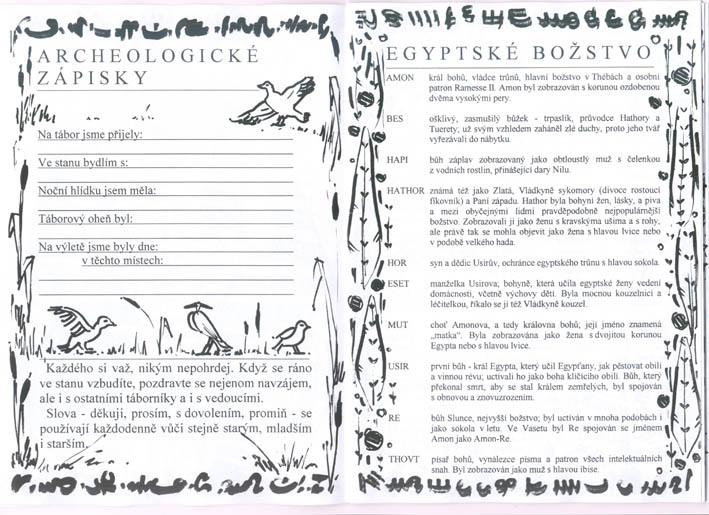 ARCHEOLOGICKÉ
ZÁPISKY
Na tábor jsme přijely:
Ve stanu bydlím s:
Noční hlídku jsem měla:
Táborový oheň byl:
Na výletě jsme byly dne:
v těchto místech:
Každého si važ, nikým nepohrdej. Když se ráno
ve stanu vzbudíte, pozdravte se nejenom navzájem,
ale i s ostatními táborníky a i s vedoucími.
Slova - děkuji, prosím, s dovolením, promiň - se
používají každodenně vůči stejně starým, mladším
i starším.
EGYPTSKÉ BOŽSTVO
AMON král bohů, vládce trůnů, hlavní božstvo v Thébách a osobní
patron Ramesse II. Amon byl zobrazován s korunou ozdobenou
dvěma vysokými pery.
BES ošklivý, zasmušilý bůžek - trpaslík, průvodce Hathory a
Tuerety; už svým vzhledem zaháněl zlé duchy, proto jeho tvář
vyřezávali do nábytku.
HAPI bůh záplav zobrazovaný jako obtloustlý muž s čelenkou
z vodních rostlin, přinášející dary Nilu.
HATHOR známá též jako Zlatá, Vládkyně sykomory (divoce rostoucí
fíkovník) a Paní západu. Hathor byla bohyní žen, lásky, a piva
a mezi obyčejnými lidmi pravděpodobně nejpopulárnější
božstvo. Zobrazovali ji jako ženu s kravskýma ušima a s rohy,
ale právě tak se mohla objevit jako žena s hlavou lvice nebo
v podobě velkého hada.
HOR syn a dědic Usirův, ochránce egyptského trůnu s hlavou sokola.
ESET manželka Usirova; bohyně, která učila egyptské ženy vedení
domácnosti, včetně výchovy dětí. Byla mocnou kouzelnicí a
léčitelkou, říkalo se jí též Vládkyně kouzel.
MUT choť Amonova, a tedy královna bohů; její jméno znamená
„matka“. Byla zobrazována jako žena s dvojitou korunou
Egypta nebo s hlavou lvice.
USIR první bůh - král Egypta, který učil Egypťany, jak pěstovat obilí
a vinnou révu; uctívali ho jako boha klíčícího obilí. Bůh, který
překonal smrt, aby se stal králem zemřelých, byl spojován
s obnovou a znovuzrozením.
RE bůh Slunce, nejvyšší božstvo; byl uctíván v mnoha podobách i
jako sokola v letu. Ve Vasetu byl Re spojován se jménem
Amon jako Amon-Re.
THOVT písař bohů, vynálezce písma a patron všech intelektuálních
snah. Byl zobrazován jako muž s hlavou ibise.